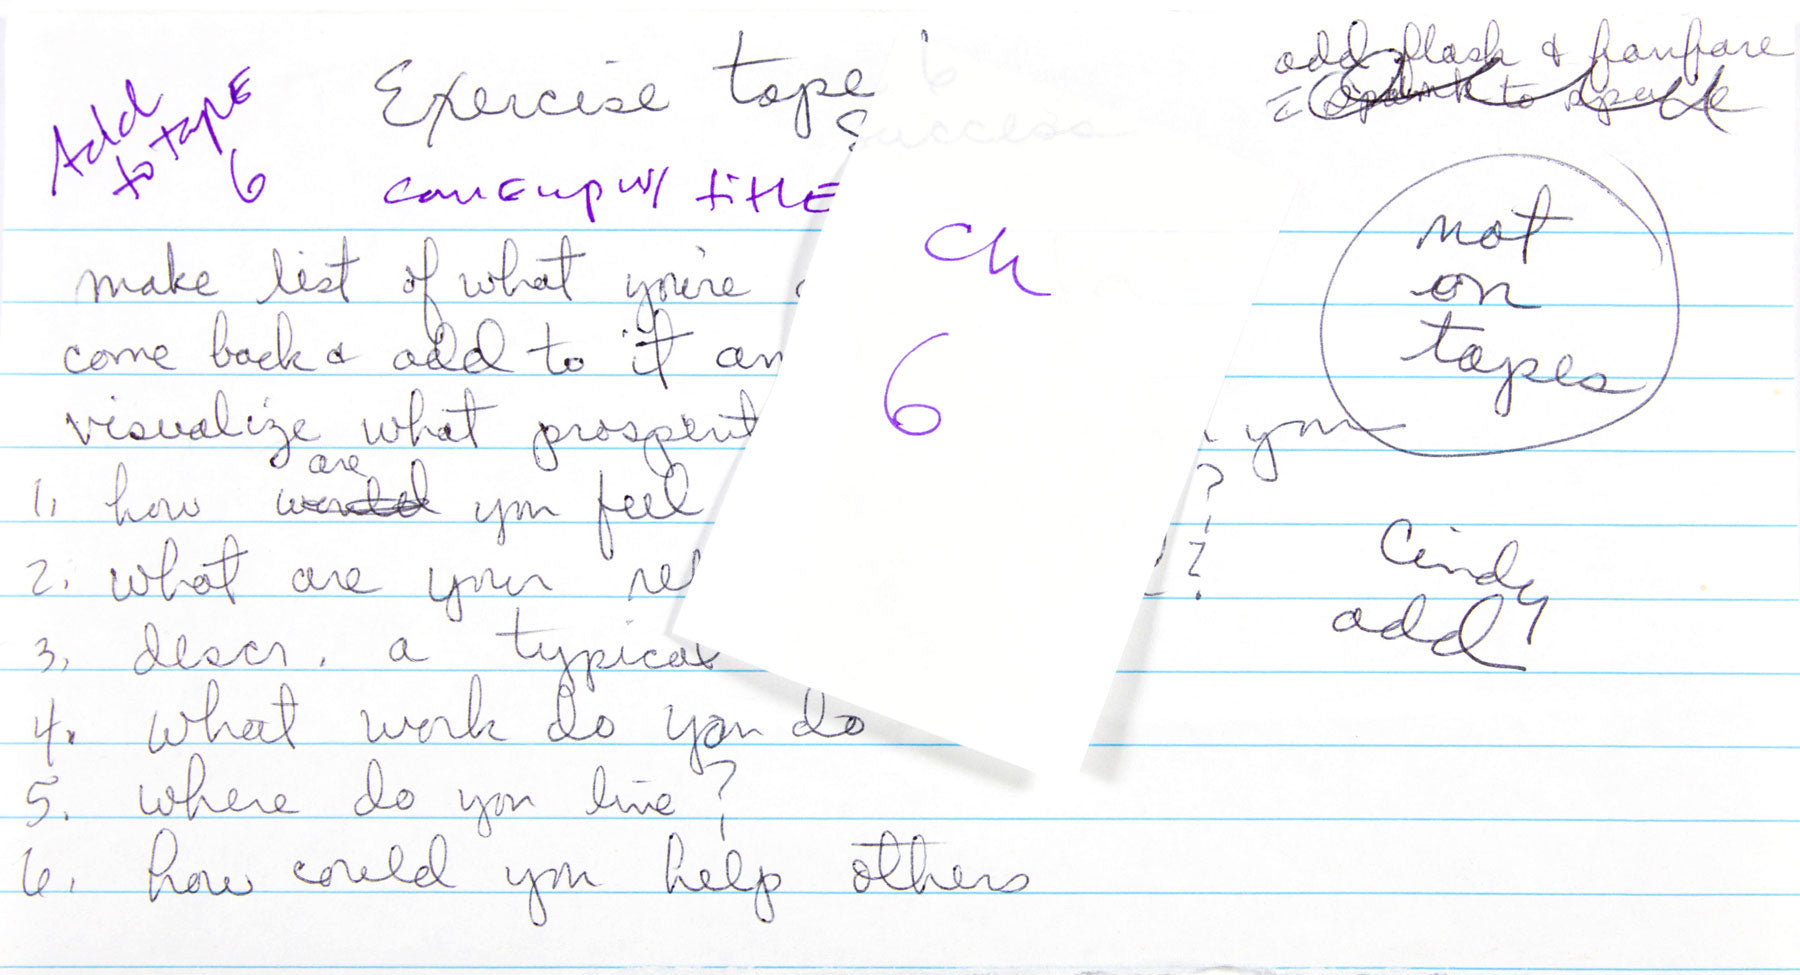 Add
to tape
6
Exercise tape
come up w/ title
add flash & fanfare
ch
6
not
on
tapes
make list of what you're
come back & add to it
visualize what
you
are
1. how would you feel
?
2. what are your
?
3. descr. a typical
4. what work do you do
5. where do you live?
6. how could you help others
Cindy
add